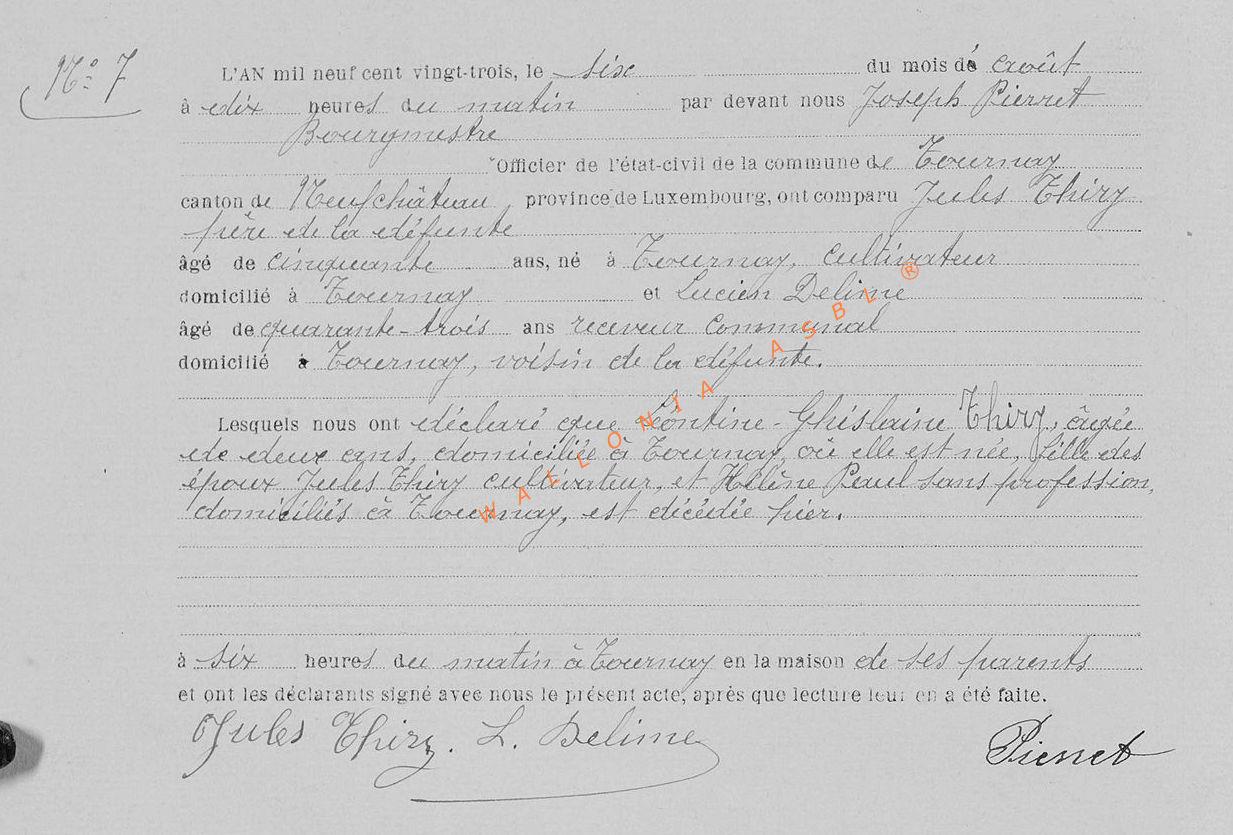 N° 7
L'AN mil neuf cent vingt-trois, le six du mois d' août
à dix heures du matin par devant nous Joseph Pierret
Bourgmestre
Officier de l'état-civil de la commune de Tournay
canton de Neufchâteau, province de Luxembourg, ont comparu Jules Thiry
père de la défunte
âgé de cinquante ans, né à Tournay, cultivateur
domicilié à Tournay et Lucien Delime
âgé de quarante-trois ans receveur communal
domicilié à Tournay, voisin de la défunte.
Lesquels nous ont déclaré que Léontine-Ghislaine Thiry, âgée
de deux ans, domiciliée à Tournay, où elle est née, fille des
époux Jules Thiry cultivateur, et Hélène Paul sans profession,
domiciliés à Tournay, est décédée hier.
à six heures du matin à Tournay en la maison de ses parents
et ont les déclarants signé avec nous le présent acte, après que lecture leur en a été faite.
Jules Thiry. L. Delime Pierret
WALLONIA ASBL ®